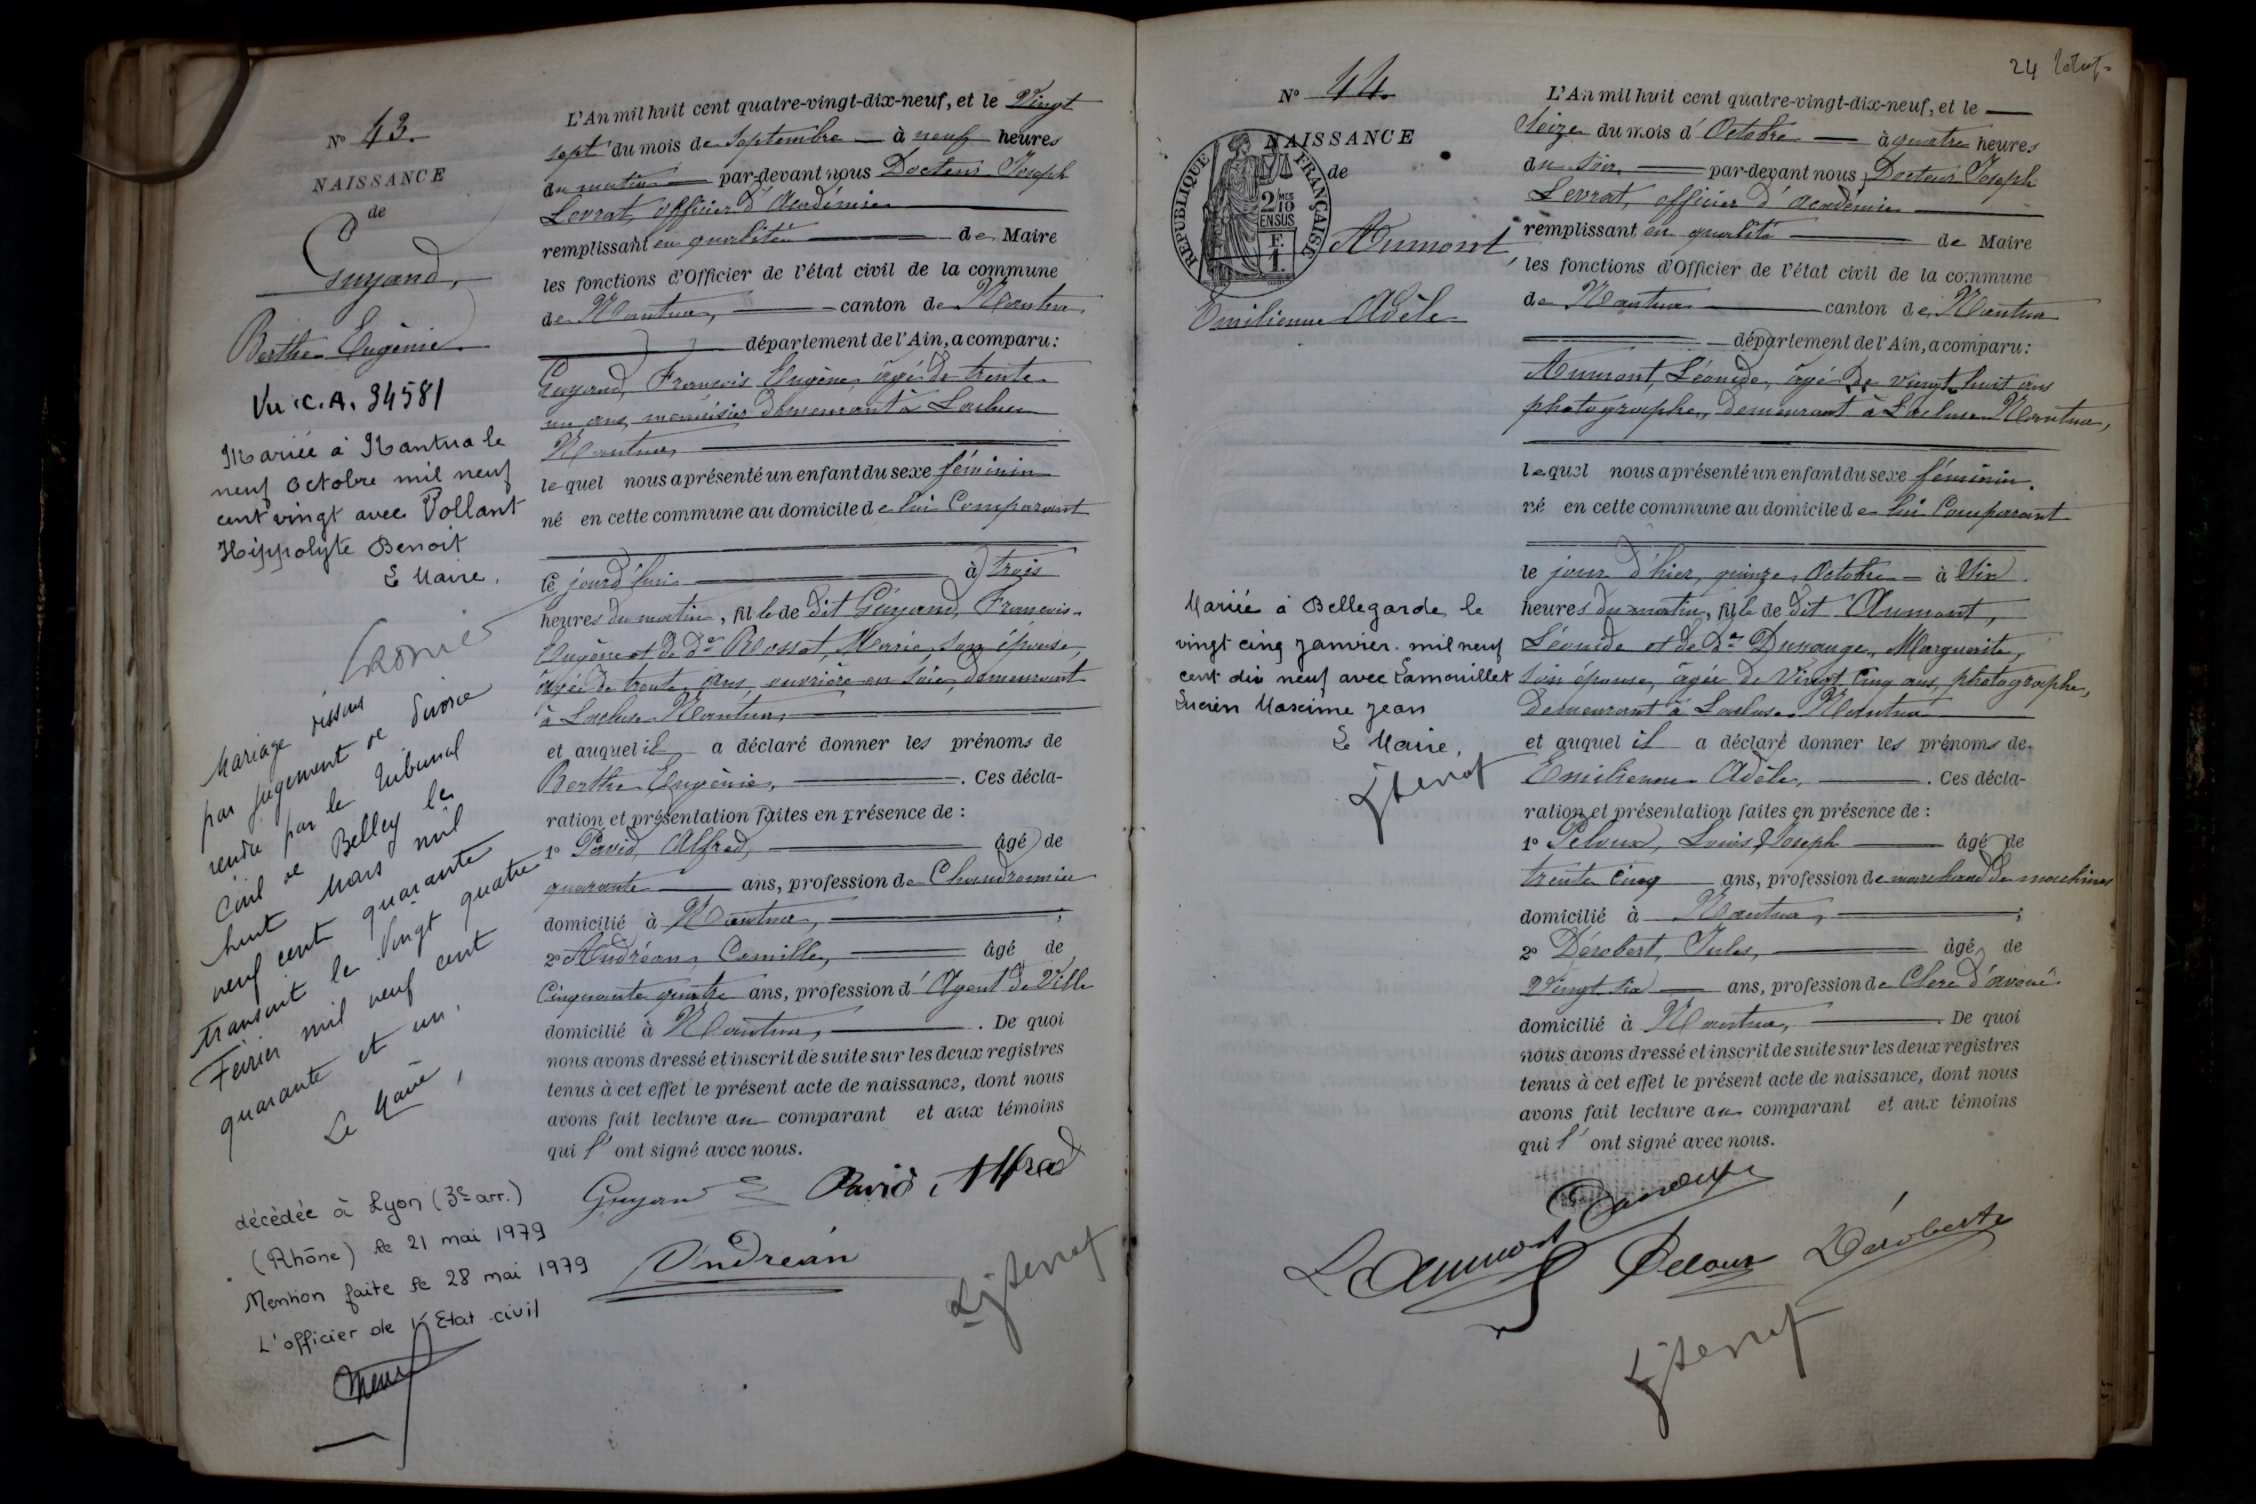 Nº 43.
NAISSANCE
de
Guyand,
Berthe Eugénie
Vu .C.A. 34581
Mariée à Nantua le
neuf octobre mil neuf
cent vingt avec Pollant
Hippolyte Benoit
Le Maire.
Mariage dissous
par jugement de divorce
rendu par le tribunal
civil de Belley le
huit mars mil
neuf cent quarante
transcrit le vingt quatre
Février mil neuf cent
quarante et un.
Le Maire,
décédée à Lyon (3e arr.)
(Rhône) le 21 mai 1979
Mention faite le 28 mai 1979
L'officier de l'Etat civil
L'An mil huit cent quatre-vingt-dix-neuf, et le Vingt
sept du mois de Septembre à neuf heures
du matin par-devant nous Docteur Joseph
Levrat, officier d'Académie
remplissant en qualité de Maire
les fonctions d'Officier de l'état civil de la commune
de Nantua, canton de Nantua
département de l'Ain, a comparu :
Guyand, François Eugène, âgé de trente
un ans, menuisier demeurant à Lacluse
Nantua,
lequel nous a présenté un enfant du sexe féminin
né en cette commune au domicile de lui Comparant
ce jourd'hui à trois
heures du matin, fille de dit Guyand, François
Eugène et de De Rossat, Marie, son épouse,
âgée de trente ans, ouvrière en soie, demeurant
à Lacluse Nantua,
et auquel il a déclaré donner les prénoms de
Berthe Eugénie, . Ces décla-
ration et présentation faites en présence de :
1º David, Alfred, âgé de
quarante ans, profession de Chaudronnier
domicilié à Nantua, ;
2º Andréan, Camille, âgé de
Cinquante quatre ans, profession d'Agent de Ville
domicilié à Nantua, . De quoi
nous avons dressé et inscrit de suite sur les deux registres
tenus à cet effet le présent acte de naissance, dont nous
avons fait lecture au comparant et aux témoins
qui l'ont signé avec nous.
Guyand E David Alfred
Andréan
24
Nº 44.
NAISSANCE
de
RÉPUBLIQUE FRANÇAISE
2 MES
10
EN SUS
F.
1.
Aumont,
Emilienne Adèle
Mariée à Bellegarde le
vingt cinq Janvier mil neuf
cent dix neuf avec Lamouillet
Lucien Maxime Jean
Le Maire,
L'An mil huit cent quatre-vingt-dix-neuf, et le
Seize du mois d'Octobre à quatre heures
du soir par-devant nous Docteur Joseph
Levrat, officier d'académie
remplissant en qualité de Maire
les fonctions d'Officier de l'état civil de la commune
de Nantua canton de Nantua
département de l'Ain, a comparu :
Aumont, Léonide, âgé de vingt huit ans
photographe, demeurant à Lacluse Nantua,
lequel nous a présenté un enfant du sexe féminin.
né en cette commune au domicile de lui Comparant
le jour d'hier, quinze Octobre à Six
heures du matin, fille de dit Aumont,
Léonide et de De Durauge, Marguerite,
son épouse, âgée de Vingt Cinq ans, photographe,
demeurant à Lacluse Nantua
et auquel il a déclaré donner les prénoms de
Emilienne Adèle, . Ces décla-
ration et présentation faites en présence de :
1º Peloux, Louis Joseph âgé de
trente Cinq ans, profession de marchand de machines
domicilié à Nantua, ;
2º Dérobert, Jules, âgé de
Vingt six ans, profession de Clerc d'avoué
domicilié à Nantua, . De quoi
nous avons dressé et inscrit de suite sur les deux registres
tenus à cet effet le présent acte de naissance, dont nous
avons fait lecture au comparant et aux témoins
qui l'ont signé avec nous.
L Aumont Peloux Dérobert